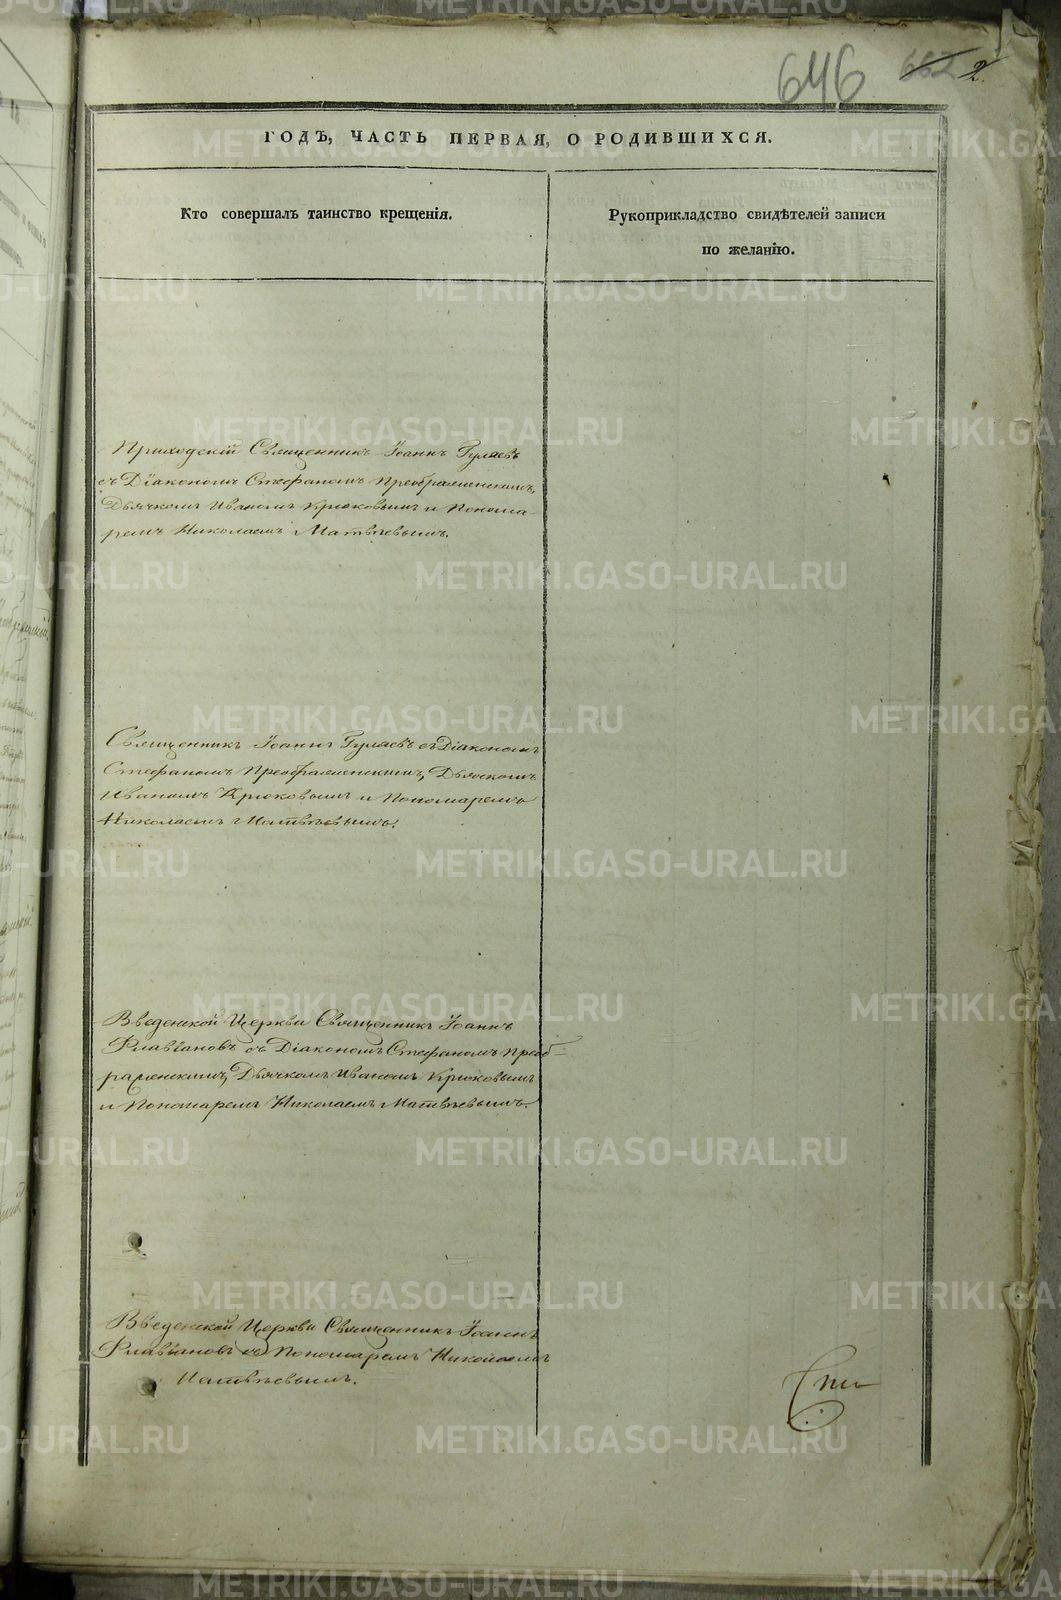 646 662 2.
ГОДЪ, ЧАСТЬ ПЕРВАЯ, О РОДИВШИХСЯ.
Кто совершалъ таинство крещенія.
Рукоприкладство свидѣтелей записи
по желанію.
Приходскій Священникъ Іоаннъ Гуляевъ
съ Діакономъ Стефаномъ Преображенскимъ,
Дьячкомъ Иваномъ Крюковымъ и Понома
ремъ Николаемъ Матвѣевымъ.
Священникъ Іоаннъ Гуляевъ съ Діакономъ
Стефаномъ Преображенскимъ, Дьячкомъ
Иваномъ Крюковымъ и Пономаремъ
Николаемъ Матвѣевымъ.
Введенской Церкви Священникъ Іоаннъ
Флавіановъ съ Діакономъ Стефаномъ Преоб
раженскимъ, Дьячкомъ Иваномъ Крюковымъ
и Пономаремъ Николаемъ Матвѣевымъ.
Введенской Церкви Священникъ Іоаннъ
Флавіановъ съ Пономаремъ Николаемъ
Матвѣевымъ.
METRIKI.GASO-URAL.RU